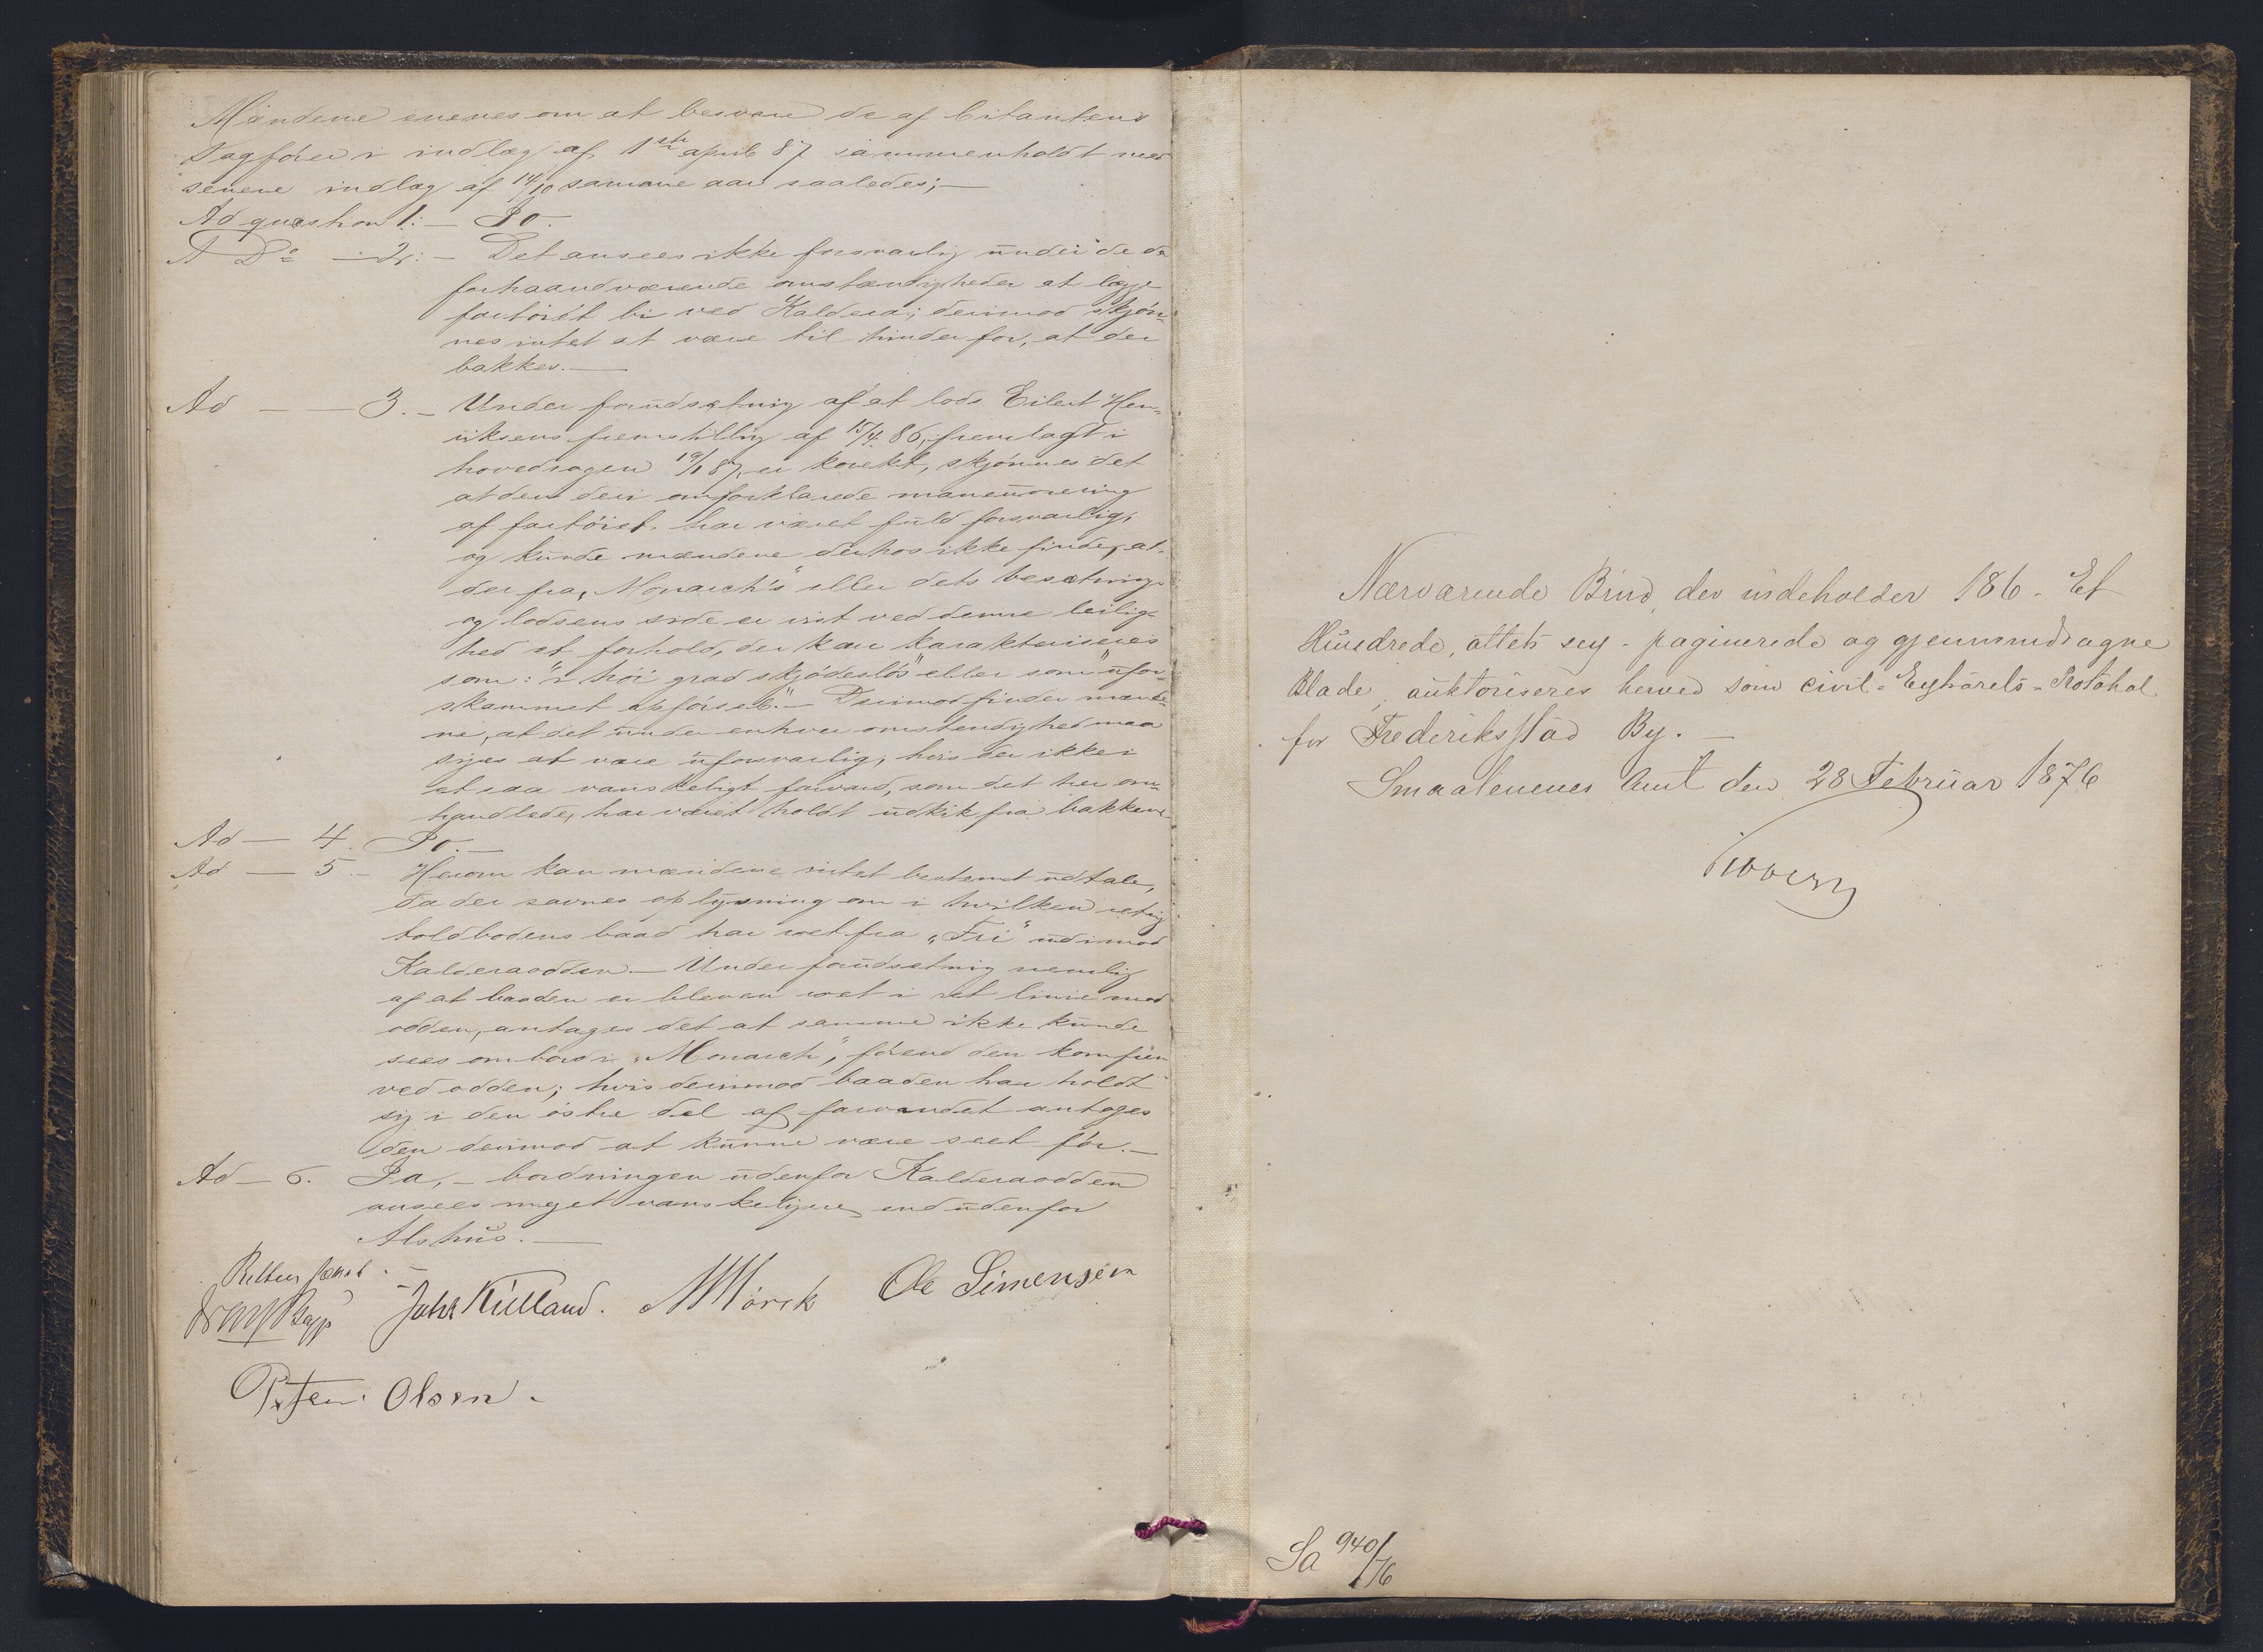 Mændene enenes om at besvare de af Citantens
Sagfører i indlæg af 1ste april 87 sammenholdt med
senere indlæg af 14/10 samme aar saaledes; —
Ad question 1: — Jo.
A Do — 2: — Det ansees ikke forsvarlig under de da
forhaandværende omstændigheder at lægge
fartöiet bi ved Kaldera; derimod skjön-
nes intet at være til hinder for, at der
bakkes. —
Ad — — 3. — Under forudsætnig af at lods Eilert Hen-
riksens fremstillig af 15/4 86, fremlagt i
hovedsagen 19/1 87, er korekt, skjönnes det
at den deri omforklarede maneuvrering
af fartöiet, har været fuld forsvarlig,
og kunde mændene derhos ikke finde, at
der fra „Monarch's" eller dets besætnings
og lodsens side er vist ved denne leilig-
hed et forhold, der kan karakteriseres
som: "i höi grad skjödeslös" eller som "ufor-
skammet opförsel". — Derimod finder mænde-
ne, at det under enhver omstendighed maa
siges at være uforsvarlig, hvis der ikke i
et saa vanskeligt farvand, som det her om-
handlede, har været holdt udkik fra bakken.
Ad — 4. Jo. —
Ad — 5. — Herom kan mændene intet bestemt udtale,
da der savnes oplysning om i hvilken retnig
toldbodens baad har roet fra „Fri" ud imod
Kalderaodden. — Under forudsætnig nemlig
af at baaden er bleven roet i ret linie mod
odden, antages det at samme ikke kunde
sees ombord i „Monarch", förend den kom frem
ved odden; hvis derimod baaden har holdt
sig i den östre del af farvandet antages
den derimod at kunne være seet för. —
Ad — 6. Ja, — bordningen udenfor Kalderaodden
ansees meget vanskeligere end udenfor
Alshus. —
Retten hævet. —
Johs Kielland. M Mörck Ole Simensen
Peter Olsen.
Nærværende Bind, der indeholder 186 - Et
Hundrede, ottets sex - paginerede og gjennemdragne
Blade, auktoriseres herved som civil-Extrarets-Protokol
for Frederiksstad By. —
Smaalenenes Amt den 28 Februar 1876
Sa 940/76